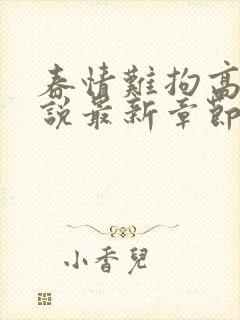 春情難拘高
說最新章節
小香兒